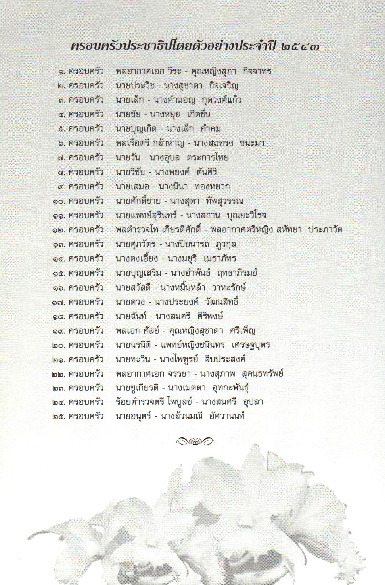 ครอบครัวประชาธิปไตยตัวอย่างประจำปี ๒๕๔๓
๑. ครอบครัว พลอากาศเอก วีระ - คุณหญิงสุภา กิจจาทร
๒. ครอบครัว นายประวิช - นางสุชาดา กิจเจริญ
๓. ครอบครัว นายเล็ก - นางคำมอญ กุดวงค์แก้ว
๔. ครอบครัว นายชัย - นางหยุย เกิดชื่น
๕. ครอบครัว นายบุญเกิด - นางเล็ก คำคม
๖. ครอบครัว พลเรือตรี กล้าหาญ - ชนะมา
๗. ครอบครัว นายวัน นางอุบล ตระการไทย
๘. ครอบครัว นายวิชัย - นางพยงค์ ตันศิริ
๙. ครอบครัว นายเสมอ - นางนีนา ทองหยวก
๑๐. ครอบครัว นายศักดิ์ชาย - นางสุดา ทัพสุวรรณ
๑๑. ครอบครัว นายแพทย์สุรินทร์ - นางสถาน บุณยะวิโรจ
๑๒. ครอบครัว พลตำรวจโท เกียรติศักดิ์ - พลอากาศตรีหญิง สหัทยา ประภาวัต
๑๓. ครอบครัว นายศุภวัตร - นางปิยนารถ ภูวกุล
๑๔. ครอบครัว นางตงเฮี้ยง - นางมยุรี เมธาภัทร
๑๕. ครอบครัว นายบุญเสริม - นางอำพันธ์ ฤทธาภิรมย์
๑๖. ครอบครัว นายสวัสดิ์ - นางหมื่นหล้า วาทะรักษ์
๑๗. ครอบครัว นายดวง - นางประยงค์ วัฒนสิทธิ์
๑๘. ครอบครัว นายจันท์ - นางสมศรี ศิริพงษ์
๑๙. ครอบครัว พลเอก ศัลย์ - คุณหญิงสุชาดา ศรีเพ็ญ
๒๐. ครอบครัว นายนรนิติ - แพทย์หญิงชนินทร เศรษฐบุตร
๒๑. ครอบครัว นายทะวิน - นางไพฑูรย์ สืบประสงค์
๒๒. ครอบครัว พลอากาศเอก จรรยา - นางสุภาพ สุคนธทรัพย์
๒๓. ครอบครัว นายชูเกียรติ - นางเมตตา อุทกะพันธุ์
๒๔. ครอบครัว ร้อยตำรวจตรี ไพบูลย์ - นางสมศรี อุปลา
๒๕. ครอบครัว นายอนุตร์ - นางล้วนมณี อัศวานนท์